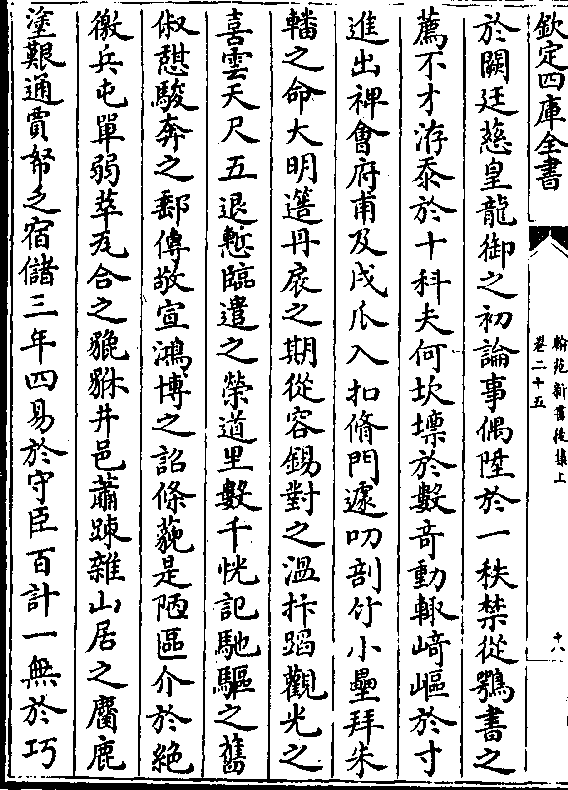 欽定四庫全書
翰苑新書後集上
卷二十五
十八
於闕廷慈皇龍御之初論事偶陞於一秩禁從鶚書之
薦不才洊忝於十科夫何坎壈於數竒動輒﨑嶇於寸
進出裨會府甫及戍瓜入扣脩門遽叨剖竹小壘拜朱
轓之命大明邁丹扆之期從容錫對之温抃蹈觀光之
喜雲天尺五退慙臨遣之榮道里數千恍記馳驅之舊
俶憇駿奔之郵傳敬宣鴻博之詔條藐是陋區介於絶
徼兵屯單弱萃烏合之貔貅井邑蕭踈雜山居之麏鹿
塗艱通貢帑乏宿儲三年四易於守臣百計一無於巧